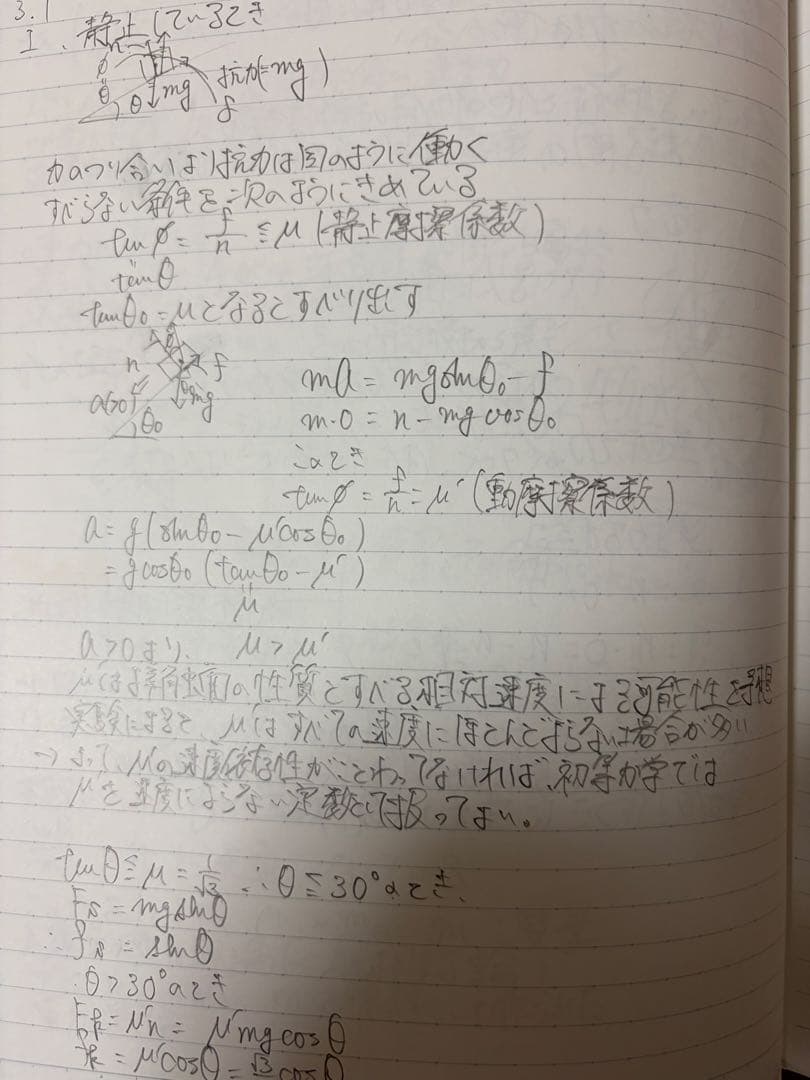 3.1
I、静止しているとき
n
φ
θ
θ mg 抗力(=mg)
f
力のつり合いより抗力は図のように働く
すべらない条件を次のようにきめている
tanφ = f/n ≦ μ (静止摩擦係数)
tanθ
tanθ₀ = μとなるとすべり出す
n f
a(>0) mg
θ₀
ma = mg sinθ₀ - f
m・0 = n - mg cosθ₀
このとき
tanφ = f/n = μ' (動摩擦係数)
a = g(sinθ₀ - μ'cosθ₀)
= g cosθ₀ (tanθ₀ - μ')
μ
a>0より、 μ > μ'
μ'は の性質とすべる相対速度による可能性を予想
実験によると、μ'はすべての速度にほとんどよらない場合が多い
→よって、μ'の速度依存性がことわってなければ、初等力学では
μ'を速度によらない定数として扱ってよい。
tanθ ≦ μ = 1/√3 ∴ θ ≦ 30°のとき、
Fs = mg sinθ
∴ fs = sinθ
θ > 30°のとき
Fk = μ'n = μ'mg cosθ
fk = μ'cosθ = cosθ